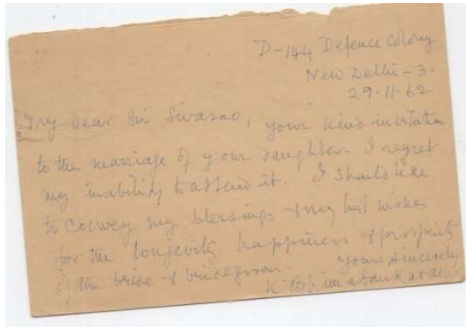 D-144 Defence Colony
New Delhi-3.
29.11.62
My dear Sri Sivarao, your kind invitation
to the marriage of your daughter. I regret
my inability to attend it. I should like
to convey my blessings & my best wishes
for the longevity happiness & prosperity
of the bride & bridegroom. Yours sincerely
K.